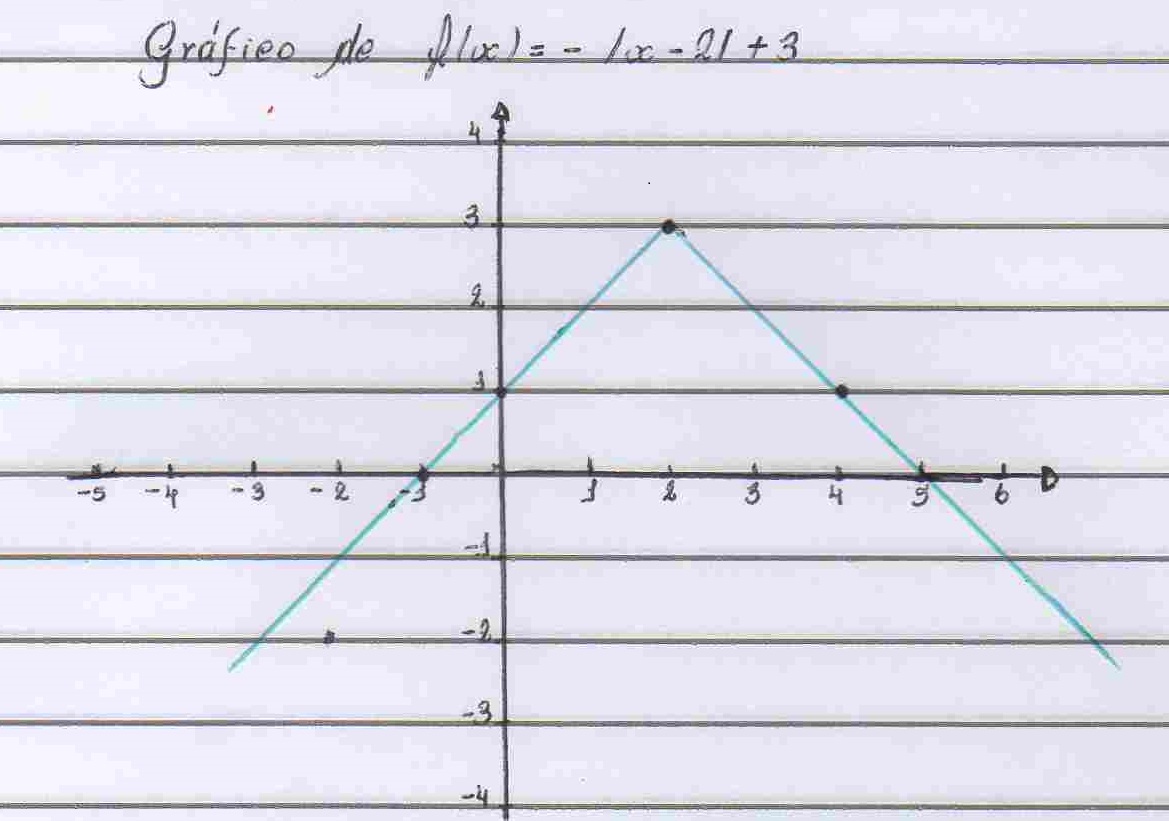 Gráfico de f(x) = - |x - 2| + 3
4
3
2
1
-5 -4 -3 -2 -1 1 2 3 4 5 6
-1
-2
-3
-4